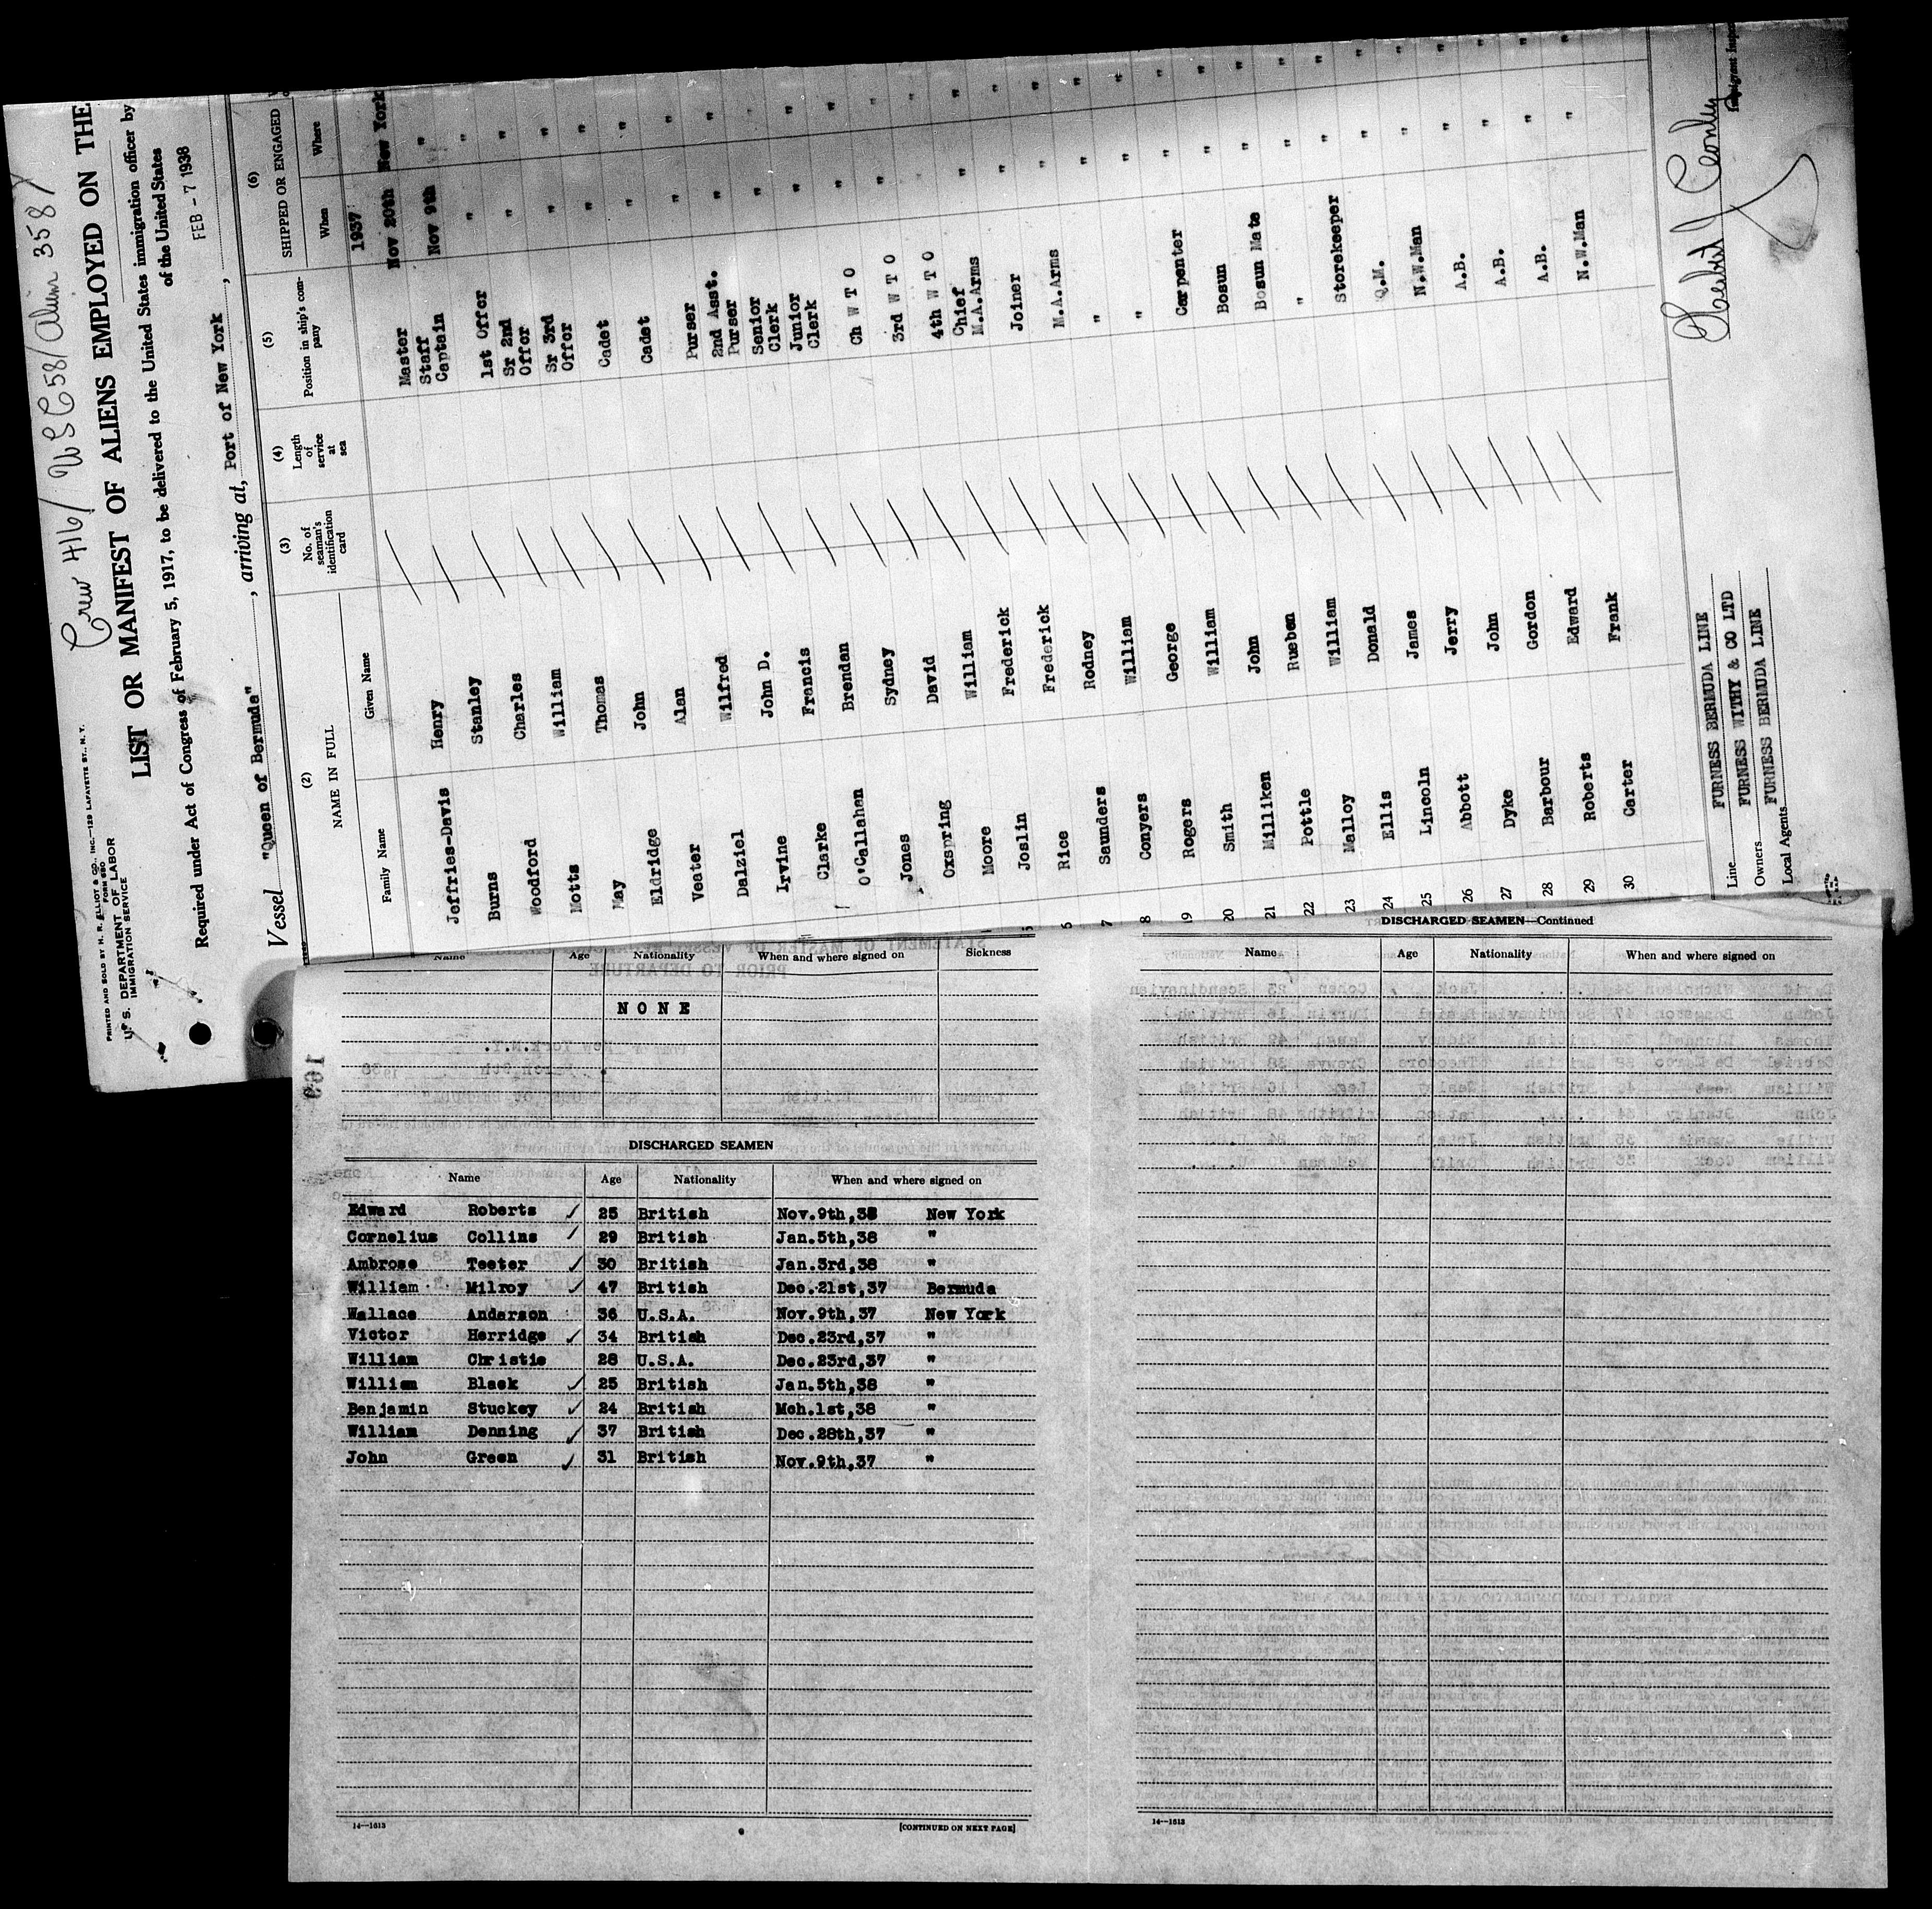 Crew 416/ USC 58/ Alien 358
PRINTED AND SOLD BY H. R. ELLIOT & CO., INC.—129 LAFAYETTE ST., N. Y.
FORM 680
U. S. DEPARTMENT OF LABOR
IMMIGRATION SERVICE
LIST OR MANIFEST OF ALIENS EMPLOYED ON THE
Required under Act of Congress of February 5, 1917, to be delivered to the United States immigration officer by
of the United States
Vessel "Queen of Bermuda", arriving at, Port of New York, FEB - 7 1938
(2) (3) (4) (5) (6)
NAME IN FULL No. of seaman's identification card Length of service at sea Position in ship's company SHIPPED OR ENGAGED
Family Name Given Name When Where
1937
Jeffries-Davis Henry Master Nov 20th New York
Burns Stanley Staff Captain Nov 9th "
Woodford Charles 1st Offer " "
Motts William Sr 2nd Offer " "
May Thomas Sr 3rd Offer " "
Eldridge John Cadet " "
Veater Alan Cadet " "
Dalziel Wilfred Purser " "
Irvine John D. 2nd Asst. Purser " "
Clarke Francis Senior Clerk " "
O'Callahan Brendan Junior Clerk " "
Jones Sydney Ch W T O " "
Oxspring David 3rd W T O " "
Moore William 4th W T O " "
5 Joslin Frederick Chief M.A.Arms " "
6 Rice Frederick Joiner " "
7 Saunders Rodney M.A.Arms " "
8 Conyers William " " "
19 Rogers George " " "
20 Smith William Carpenter " "
21 Milliken John Bosun " "
22 Pottle Rueben Bosun Mate " "
23 Malloy William " " "
24 Ellis Donald Storekeeper " "
25 Lincoln James Q.M. " "
26 Abbott Jerry N.W.Man " "
27 Dyke John A.B. " "
28 Barbour Gordon A.B. " "
29 Roberts Edward A.B. " "
30 Carter Frank N.W.Man " "
Line FURNESS BERMUDA LINE
Owners FURNESS WITHY & CO LTD
Local Agents FURNESS BERMUDA LINE
Name Age Nationality When and where signed on Sickness
NONE
DISCHARGED SEAMEN
Name Age Nationality When and where signed on
Edward Roberts 25 British Nov.9th,38 New York
Cornelius Collins 29 British Jan.5th,38 "
Ambrose Teeter 30 British Jan.3rd,38 "
William R. Milroy 47 British Dec.21st,37 Bermuda
Wallace Anderson 36 U.S.A. Nov.9th,37 New York
Victor Herridge 34 British Dec.23rd,37 "
William Christie 28 U.S.A. Dec.23rd,37 "
William Black 25 British Jan.5th,38 "
Benjamin Stuckey 24 British Mch.1st,38 "
William Denning 37 British Dec.28th,37 "
John Green 31 British Nov.9th,37 "
14—1613
[CONTINUED ON NEXT PAGE]
DISCHARGED SEAMEN—Continued
Name Age Nationality When and where signed on
14—1613